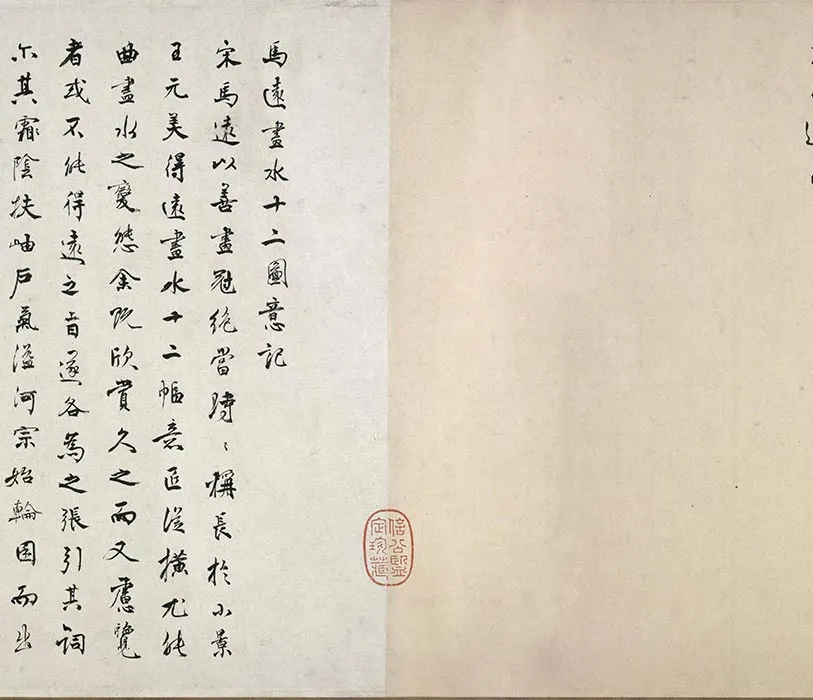 馬遠畫水十二圖意記
宋馬遠以善畫冠絕當時〻稱長於小景
王元美得遠畫水十二幅意匠從橫尤能
曲盡水之變態余既欣賞久之而又慮覽
者或不能得遠之旨遂各為之張引其詞
尔其霏陰扶岫戶氣溢河宗始輪囷而出
信公鑒定珍藏